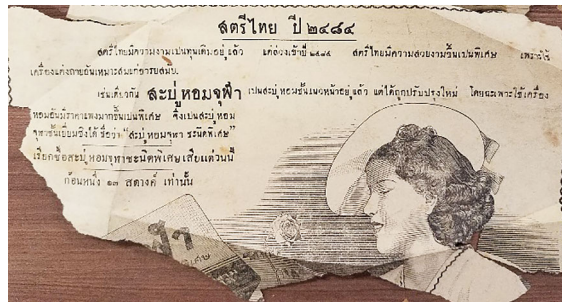 สตรีไทย ปี ๒๔๘๔
สตรีไทยมีความงามเป็นทุนเดิมอยู่แล้ว แต่ล่วงเข้าปี ๒๔๘๔ สตรีไทยมีความสวยงามขึ้นเป็นพิเศษ เพราะใช้
เครื่องแต่งกายอันเหมาะสมแก่อารยสมัย.
เช่นเดียวกัน สะบู่หอมจุฬา เป็นสะบู่หอมชั้นแนวหน้าอยู่แล้ว แต่ได้ถูกปรับปรุงใหม่ โดยฉะเพาะใช้เครื่อง
หอมอันมีราคาแพงมากขึ้นเป็นพิเศษ จึงเป็นสะบู่หอม
จุฬาชั้นเยี่ยมซึ่งได้ชื่อว่า "สะบู่หอมจุฬา ชะนิดพิเศษ"
เรียกซื้อสะบู่หอมจุฬาชะนิดพิเศษเสียแต่วันนี้
ก้อนหนึ่ง ๑๓ สตางค์ เท่านั้น